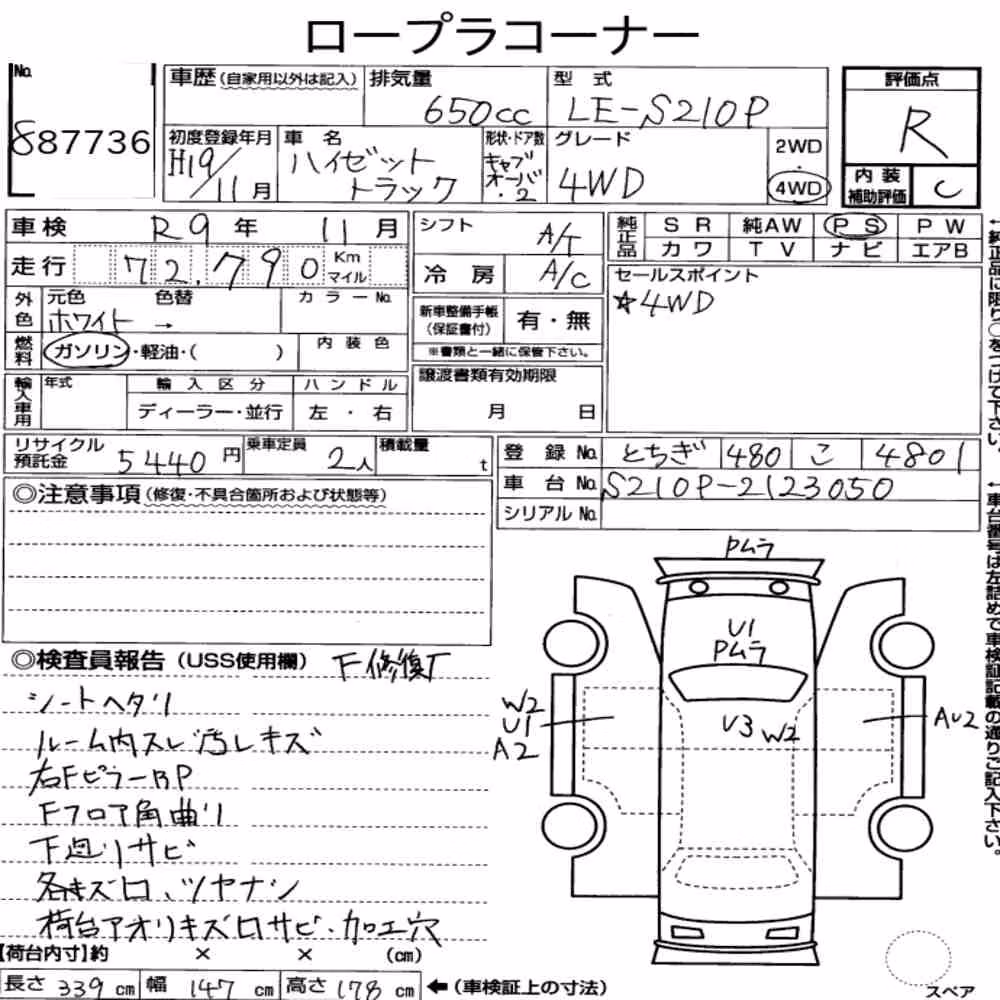 ロープラコーナー
No.
887736
車歴(自家用以外は記入)
排気量
650cc
型 式
LE-S210P
評価点
R
初度登録年月
H19/11月
車 名
ハイゼット
トラック
形状・ドア数
キャブ
オーバ
・2
グレード
4WD
2WD
・
4WD
内 装
補助評価
C
車検 R9年 11月
走行 72,790 Km マイル
シフト A/T
冷 房 A/C
純正品
SR 純AW PS PW
カワ TV ナビ エアB
セールスポイント
☆4WD
外色
元色 色替
ホワイト →
カラーNo.
燃料
ガソリン・軽油・( )
内装色
新車整備手帳
(保証書付)
有・無
※書類と一緒に保管下さい。
輸入車用
年式
輸入区分
ディーラー・並行
ハンドル
左・右
譲渡書類有効期限
月 日
リサイクル
預託金
5440円
乗車定員
2人
積載量
t
登 録 No. とちぎ 480 こ 4801
車 台 No. S210P-2123050
シリアル No.
◎注意事項(修復・不具合箇所および状態等)
◎検査員報告(USS使用欄) F修復歴
シートヘタリ
ルーム内スレ汚レキズ
右FピラーBP
Fフロア角曲リ
下廻リサビ
各キズロ、ツヤナシ
荷台アオリキズロサビ・加工穴
【荷台内寸】約 × × (cm)
長さ 339 cm 幅 147 cm 高さ 178 cm ←(車検証上の寸法)
Pムラ
U1
Pムラ
U3 W2
W2
U1
A2
AU2
スペア
←純正品に限り○をつけて下さい。
←車台番号は左詰めで車検証記載の通りご記入下さい。